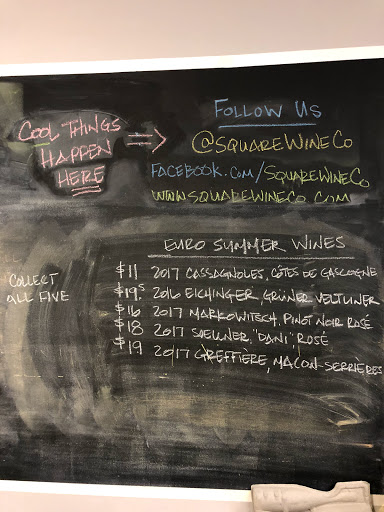 COOL THINGS
HAPPEN
HERE
FOLLOW US
@SQUAREWINECO
FACEBOOK.COM/SQUAREWINECO
WWW.SQUAREWINECO.COM
COLLECT
ALL FIVE
EURO SUMMER WINES
$11 2017 CASSAGNOLES, CÔTES DE GASCOGNE
$19.5 2016 EICHINGER, GRÜNER VELTLINER
$16 2017 MARKOWITSCH, PINOT NOIR ROSÉ
$18 2017 SOELLNER, "DANI" ROSÉ
$19 2017 GREFFIÈRE, MACON-SERRIÈRES